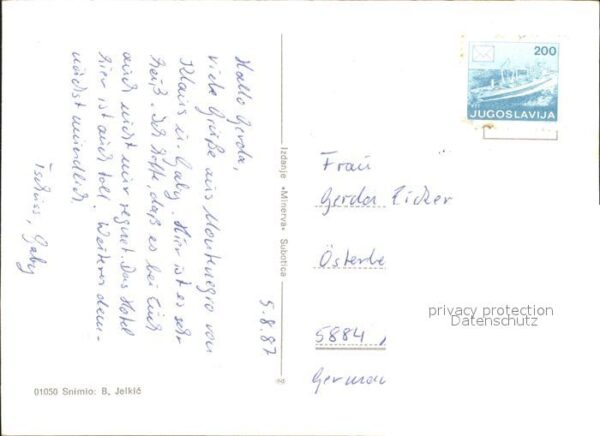 5.8.87
Hallo Gerda,
viele Grüße aus Montenegro von
Klaus u. Gaby. Hier ist es sehr
heiß. Ich hoffe, daß es bei Euch
auch nicht nur regnet. Das Hotel
hier ist auch toll. Weiteres dem-
nächst mündlich.
Tschüss, Gaby
01050 Snimio: B. Jelkić
Izdanje »Minerva« Subotica
200
JUGOSLAVIJA
Frau
Gerda
Österbe
5884
German
privacy protection
Datenschutz